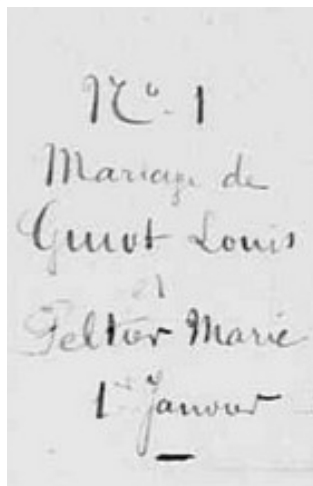 N° 1
Mariage de
Guiot Louis
et
Peltier Marie
1er Janvier